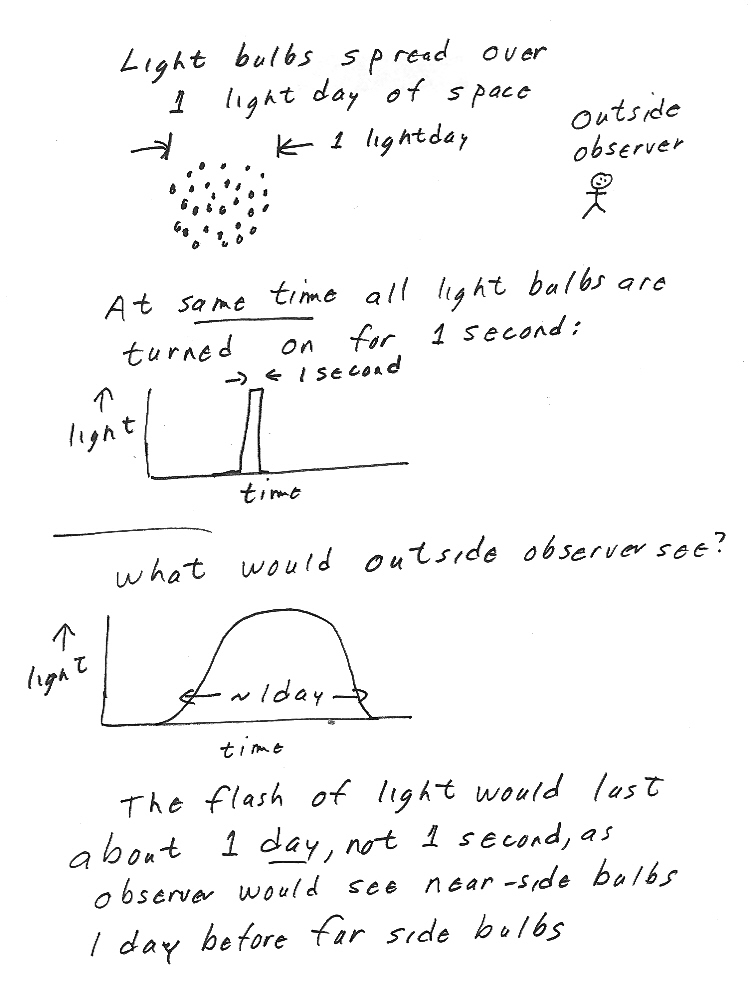 Light bulbs spread over
1 light day of space
1 lightday
outside
observer
At same time all light bulbs are
turned on for 1 second:
1 second
light
time
What would outside observer see?
light
~ 1 day
time
The flash of light would last
about 1 day, not 1 second, as
observer would see near-side bulbs
1 day before far side bulbs